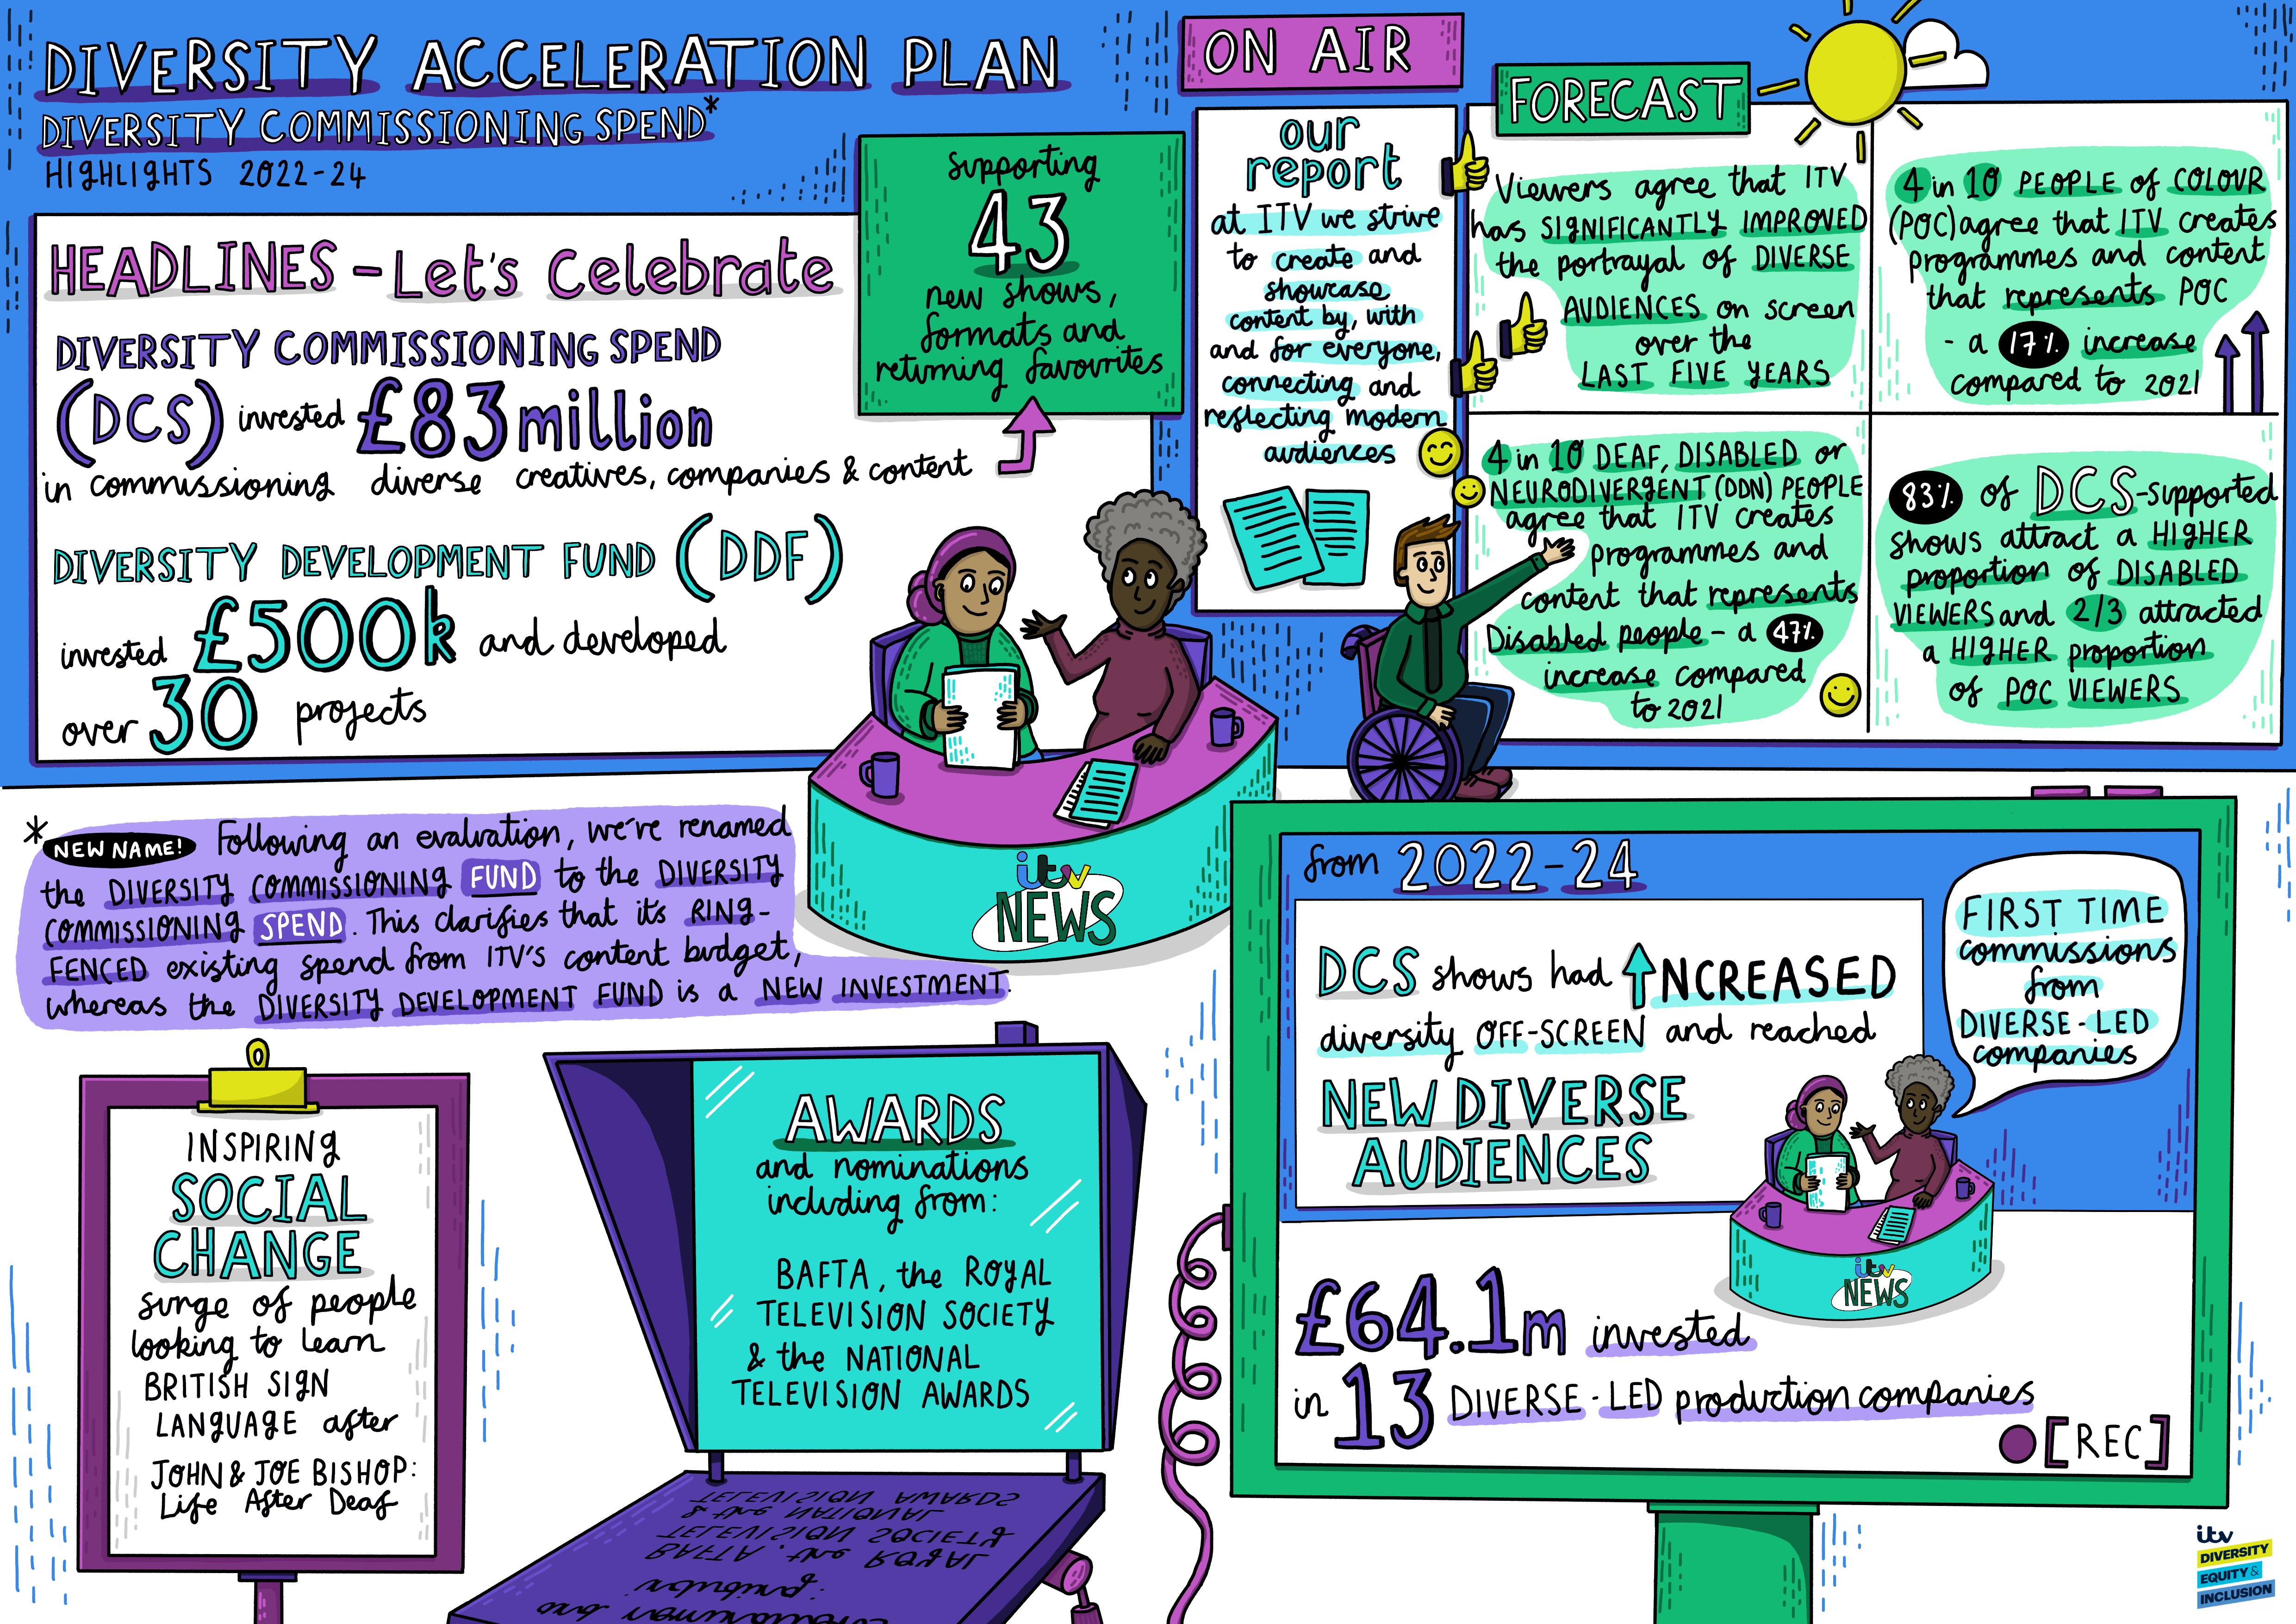 DIVERSITY ACCELERATION PLAN
DIVERSITY COMMISSIONING SPEND*
HIGHLIGHTS 2022-24
HEADLINES - Let's Celebrate
DIVERSITY COMMISSIONING SPEND
(DCS) invested £83 million
in commissioning diverse creatives, companies & content
DIVERSITY DEVELOPMENT FUND (DDF)
invested £500k and developed
over 30 projects
supporting
43
new shows,
formats and
returning favourites
ON AIR
our
report
at ITV we strive
to create and
showcase
content by, with
and for everyone,
connecting and
reflecting modern
audiences
FORECAST
Viewers agree that ITV
has SIGNIFICANTLY IMPROVED
the portrayal of DIVERSE
AUDIENCES on screen
over the
LAST FIVE YEARS
4 in 10 PEOPLE of COLOUR
(POC) agree that ITV creates
programmes and content
that represents POC
- a 17% increase
compared to 2021
4 in 10 DEAF, DISABLED or
NEURODIVERGENT (DDN) PEOPLE
agree that ITV creates
programmes and
content that represents
Disabled people - a 47%
increase compared
to 2021
83% of DCS-supported
shows attract a HIGHER
proportion of DISABLED
VIEWERS and 2/3 attracted
a HIGHER proportion
of POC VIEWERS
itv
NEWS
* NEW NAME! Following an evaluation, we've renamed
the DIVERSITY COMMISSIONING FUND to the DIVERSITY
COMMISSIONING SPEND. This clarifies that its RING-
FENCED existing spend from ITV'S content budget,
whereas the DIVERSITY DEVELOPMENT FUND is a NEW INVESTMENT.
INSPIRING
SOCIAL
CHANGE
surge of people
looking to learn
BRITISH SIGN
LANGUAGE after
JOHN & JOE BISHOP:
Life After Deaf
AWARDS
and nominations
including from:
BAFTA, the ROYAL
TELEVISION SOCIETY
& the NATIONAL
TELEVISION AWARDS
TELEVISION AWARDS
& the NATIONAL
TELEVISION SOCIETY
BAFTA, the ROYAL
including:
from 2022-24
DCS shows had INCREASED
diversity OFF-SCREEN and reached
NEW DIVERSE
AUDIENCES
FIRST TIME
commissions
from
DIVERSE-LED
companies
itv
NEWS
£64.1m invested
in 13 DIVERSE-LED production companies
[REC]
itv
DIVERSITY
EQUITY &
INCLUSION